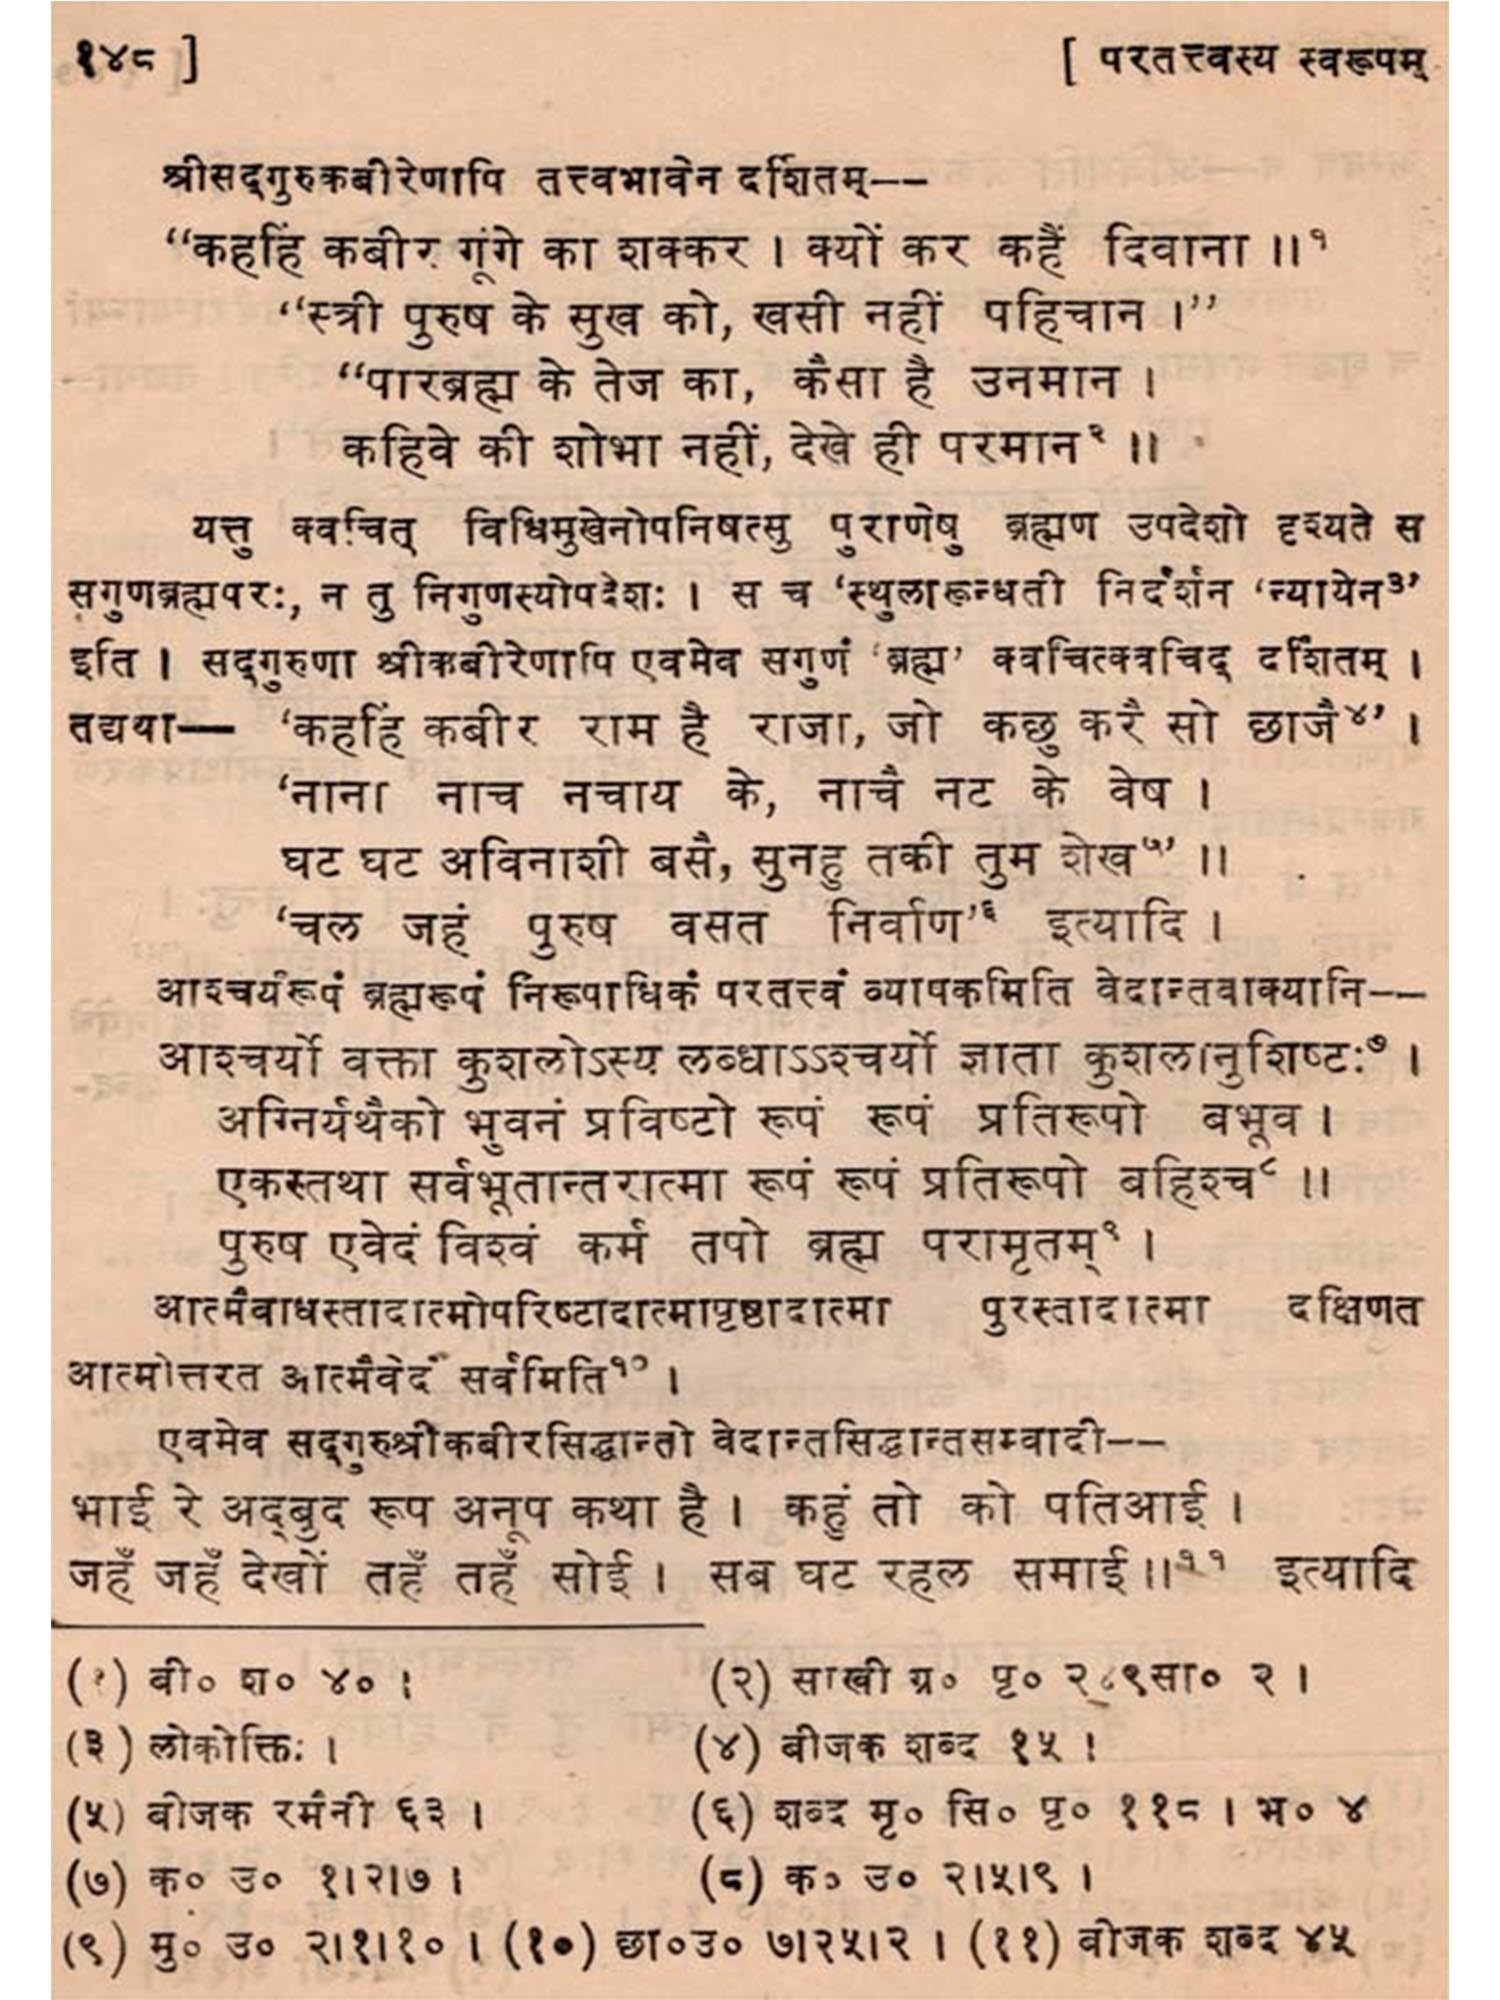 १४८ ]
[ परतत्त्वस्य स्वरूपम्
श्रीसद्गुरुकबीरेणापि तत्त्वभावेन दर्शितम्--
“कहहिं कबीर गूंगे का शक्कर । क्यों कर कहैं दिवाना ॥१
“स्त्री पुरुष के सुख को, खसी नहीं पहिचान ।”
“पारब्रह्म के तेज का, कैसा है उनमान ।
कहिवे की शोभा नहीं, देखे ही परमान२ ॥
यत्तु क्वचित् विधिमुखेनोपनिषत्सु पुराणेषु ब्रह्मण उपदेशो दृश्यते स
सगुणब्रह्मपरः, न तु निगुणस्योपदेशः । स च ‘स्थुलारून्धती निदर्शन ‘न्यायेन३’
इति । सद्गुरुणा श्रीकबीरेणापि एवमेव सगुणं ‘ब्रह्म’ क्वचित्क्वचिद् दर्शितम् ।
तद्यया— ‘कहहिं कबीर राम है राजा, जो कछु करै सो छाजै४’ ।
‘नाना नाच नचाय के, नाचै नट के वेष ।
घट घट अविनाशी बसै, सुनहु तकी तुम शेख५’ ॥
‘चल जहं पुरुष वसत निर्वाण’६ इत्यादि ।
आश्चर्यरूपं ब्रह्मरूपं निरूपाधिकं परतत्त्वं व्यापकमिति वेदान्तवाक्यानि--
आश्चर्यो वक्ता कुशलोऽस्य लब्धाऽऽश्चर्यो ज्ञाता कुशलानुशिष्टः७ ।
अग्निर्यथैको भुवनं प्रविष्टो रूपं रूपं प्रतिरूपो बभूव ।
एकस्तथा सर्वभूतान्तरात्मा रूपं रूपं प्रतिरूपो बहिश्च८ ॥
पुरुष एवेदं विश्वं कर्म तपो ब्रह्म परामृतम्९ ।
आत्मैवाधस्तादात्मोपरिष्टादात्मापृष्ठादात्मा पुरस्तादात्मा दक्षिणत
आत्मोत्तरत आत्मैवेदं सर्वमिति१० ।
एवमेव सद्गुरुश्रीकबीरसिद्धान्तो वेदान्तसिद्धान्तसम्वादी--
भाई रे अद्बुद रूप अनूप कथा है । कहुं तो को पतिआई ।
जहँ जहँ देखों तहँ तहँ सोई । सब घट रहल समाई ॥११ इत्यादि
(१) बी० श० ४० । (२) साखी ग्र० पृ० २८९सा० २ ।
(३) लोकोक्तिः । (४) बीजक शब्द १५ ।
(५) बीजक रमैनी ६३ । (६) शब्द मृ० सि० पृ० ११८ । भ० ४
(७) क० उ० १।२।७ । (८) क० उ० २।५।९ ।
(९) मु० उ० २।१।१० । (१०) छा०उ० ७।२५।२ । (११) बीजक शब्द ४५